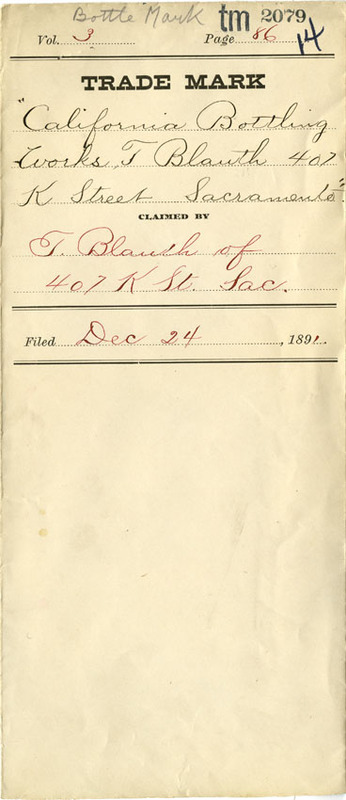 Bottle Mark tm 2079
Vol. 3 Page 86 14
TRADE MARK
"California Bottling
Works T Blauth 407
K Street Sacramento"
CLAIMED BY
T. Blauth of
407 K St. Sac.
Filed Dec 24, 1891.